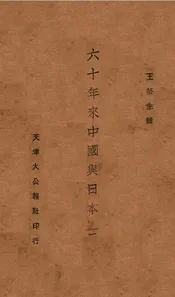 王芸生輯
六十年來中國與日本
天津大公報社印行